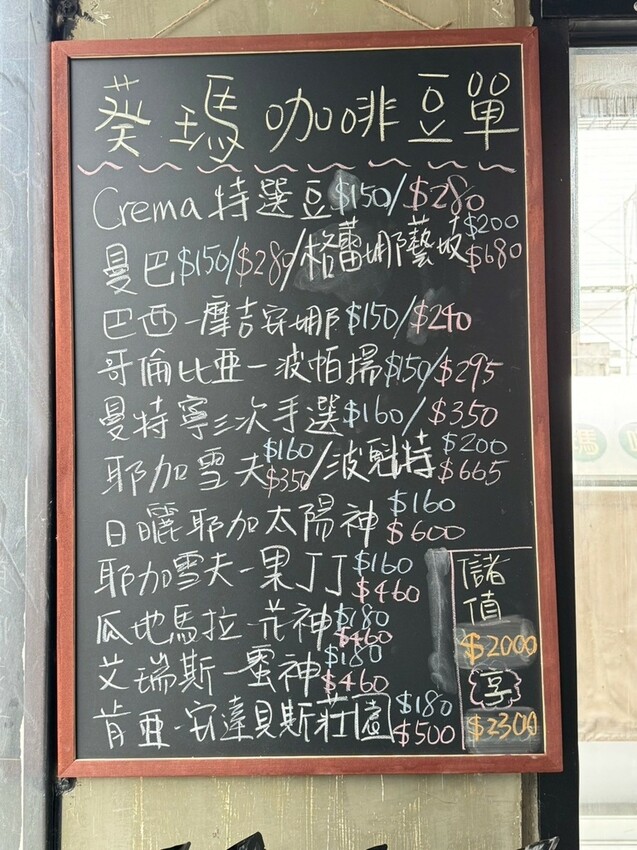 葵瑪咖啡豆單
Crema特選豆$150/$280
曼巴$150/$280/格蕾娜藝妓$200 $680
巴西-摩吉安娜$150/$240
哥倫比亞-波帕揚$150/$295
曼特寧三次手選$160/$350
耶加雪夫$160 $350/波魁特$200 $665
日曬耶加太陽神$160 $600
耶加雪夫-果丁丁$160 $460
瓜地馬拉-花神$180 $460
艾瑞斯-蜜神$180 $460
肯亞-安達貝斯莊園$180 $500
儲
值
$2000
享
$2300